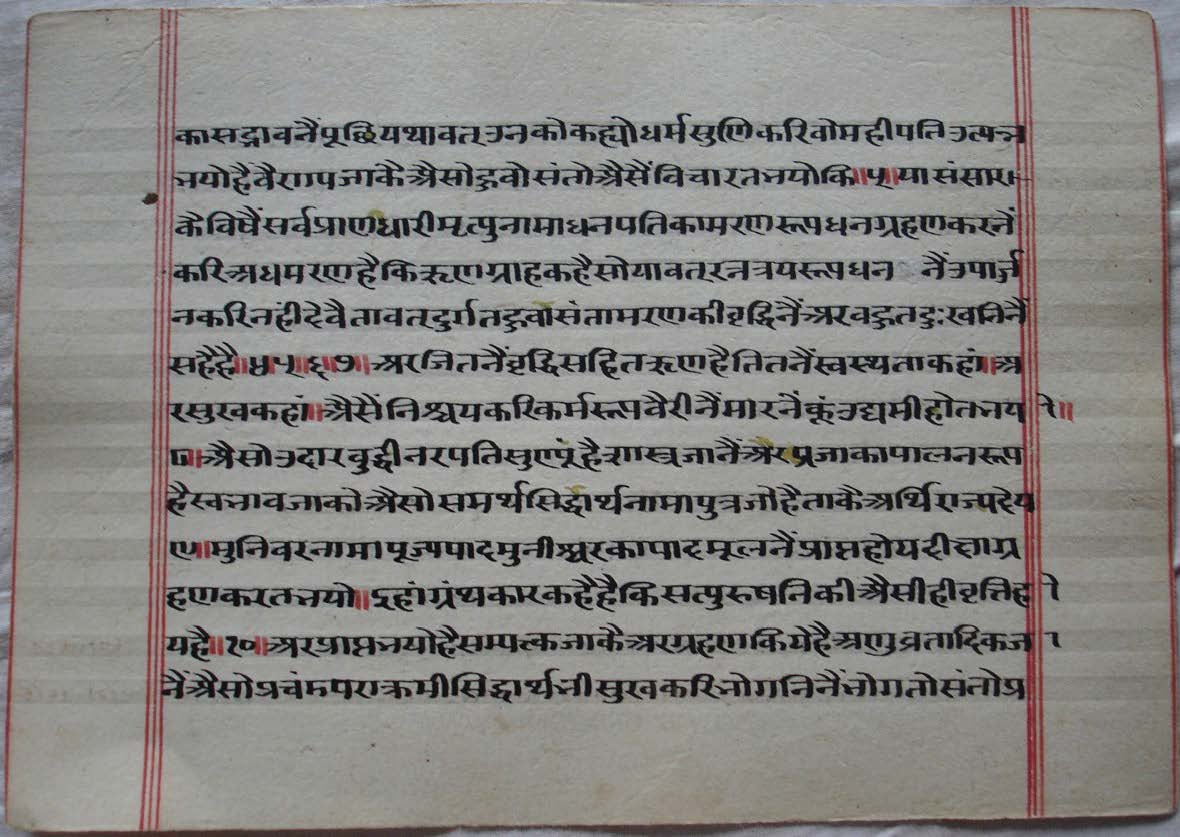 कासद्भावनैंपूछियथावत्उनकोकह्योधर्मसुणिकरिवोमहीपतिउत्पन्न
भयोहैवैराग्यजाकैअैसोहुवोसंतोअैसैंविचारतभयोकि॥५॥यासंसार
कैविषैंसर्वप्राणधारीमृत्युनामाधनपतिकामरणरूपधनग्रहणकरनैं
करिअधमरणहैकिऋणग्राहकहैसोयावत्रत्नत्रयरूपधन नैंउपार्ज
नकरिनंहीदेवैतावत्दुर्गतहुवोसंतामरणकीवृद्धिनैंअरवहुतदुःखनिनैं
सहैहै॥४५॥६॥७॥अरजितनैंवृद्धिसहितऋणहैतितनैंस्वस्थताकहां॥अ
रसुखकहां॥अैसैंनिश्चयकरिकर्मरूपवैरीनैंमारनैंकूंउद्यमीहोतभयो॥
८॥अैसोउदारवुद्धीनरपतिसुण्यूंहैशास्त्रजानैंअरप्रजाकापालनरूप
हैस्वभावजाकोअैसोसमर्थसिद्धार्थनामापुत्रजोहैताकैअर्थिराज्यदेय
९॥मुनिवरनामापूज्यपादमुनीश्वरकापादमूलनैंप्राप्तहोयदीक्षाग्र
हणकरतभयो॥इहांग्रंथकारकहैहैकिसत्पुरुषनिकीअैसीहीवृत्तिहो
यहै॥१०॥अरप्राप्तभयोहैसम्यत्कजाकैअरग्रहणकियेहैअणुव्रतादिकजा
नैंअैसोप्रचंडपराक्रमीसिद्धार्थभीसुखकरिभोगनिनैंभोगतोसंतोप्र